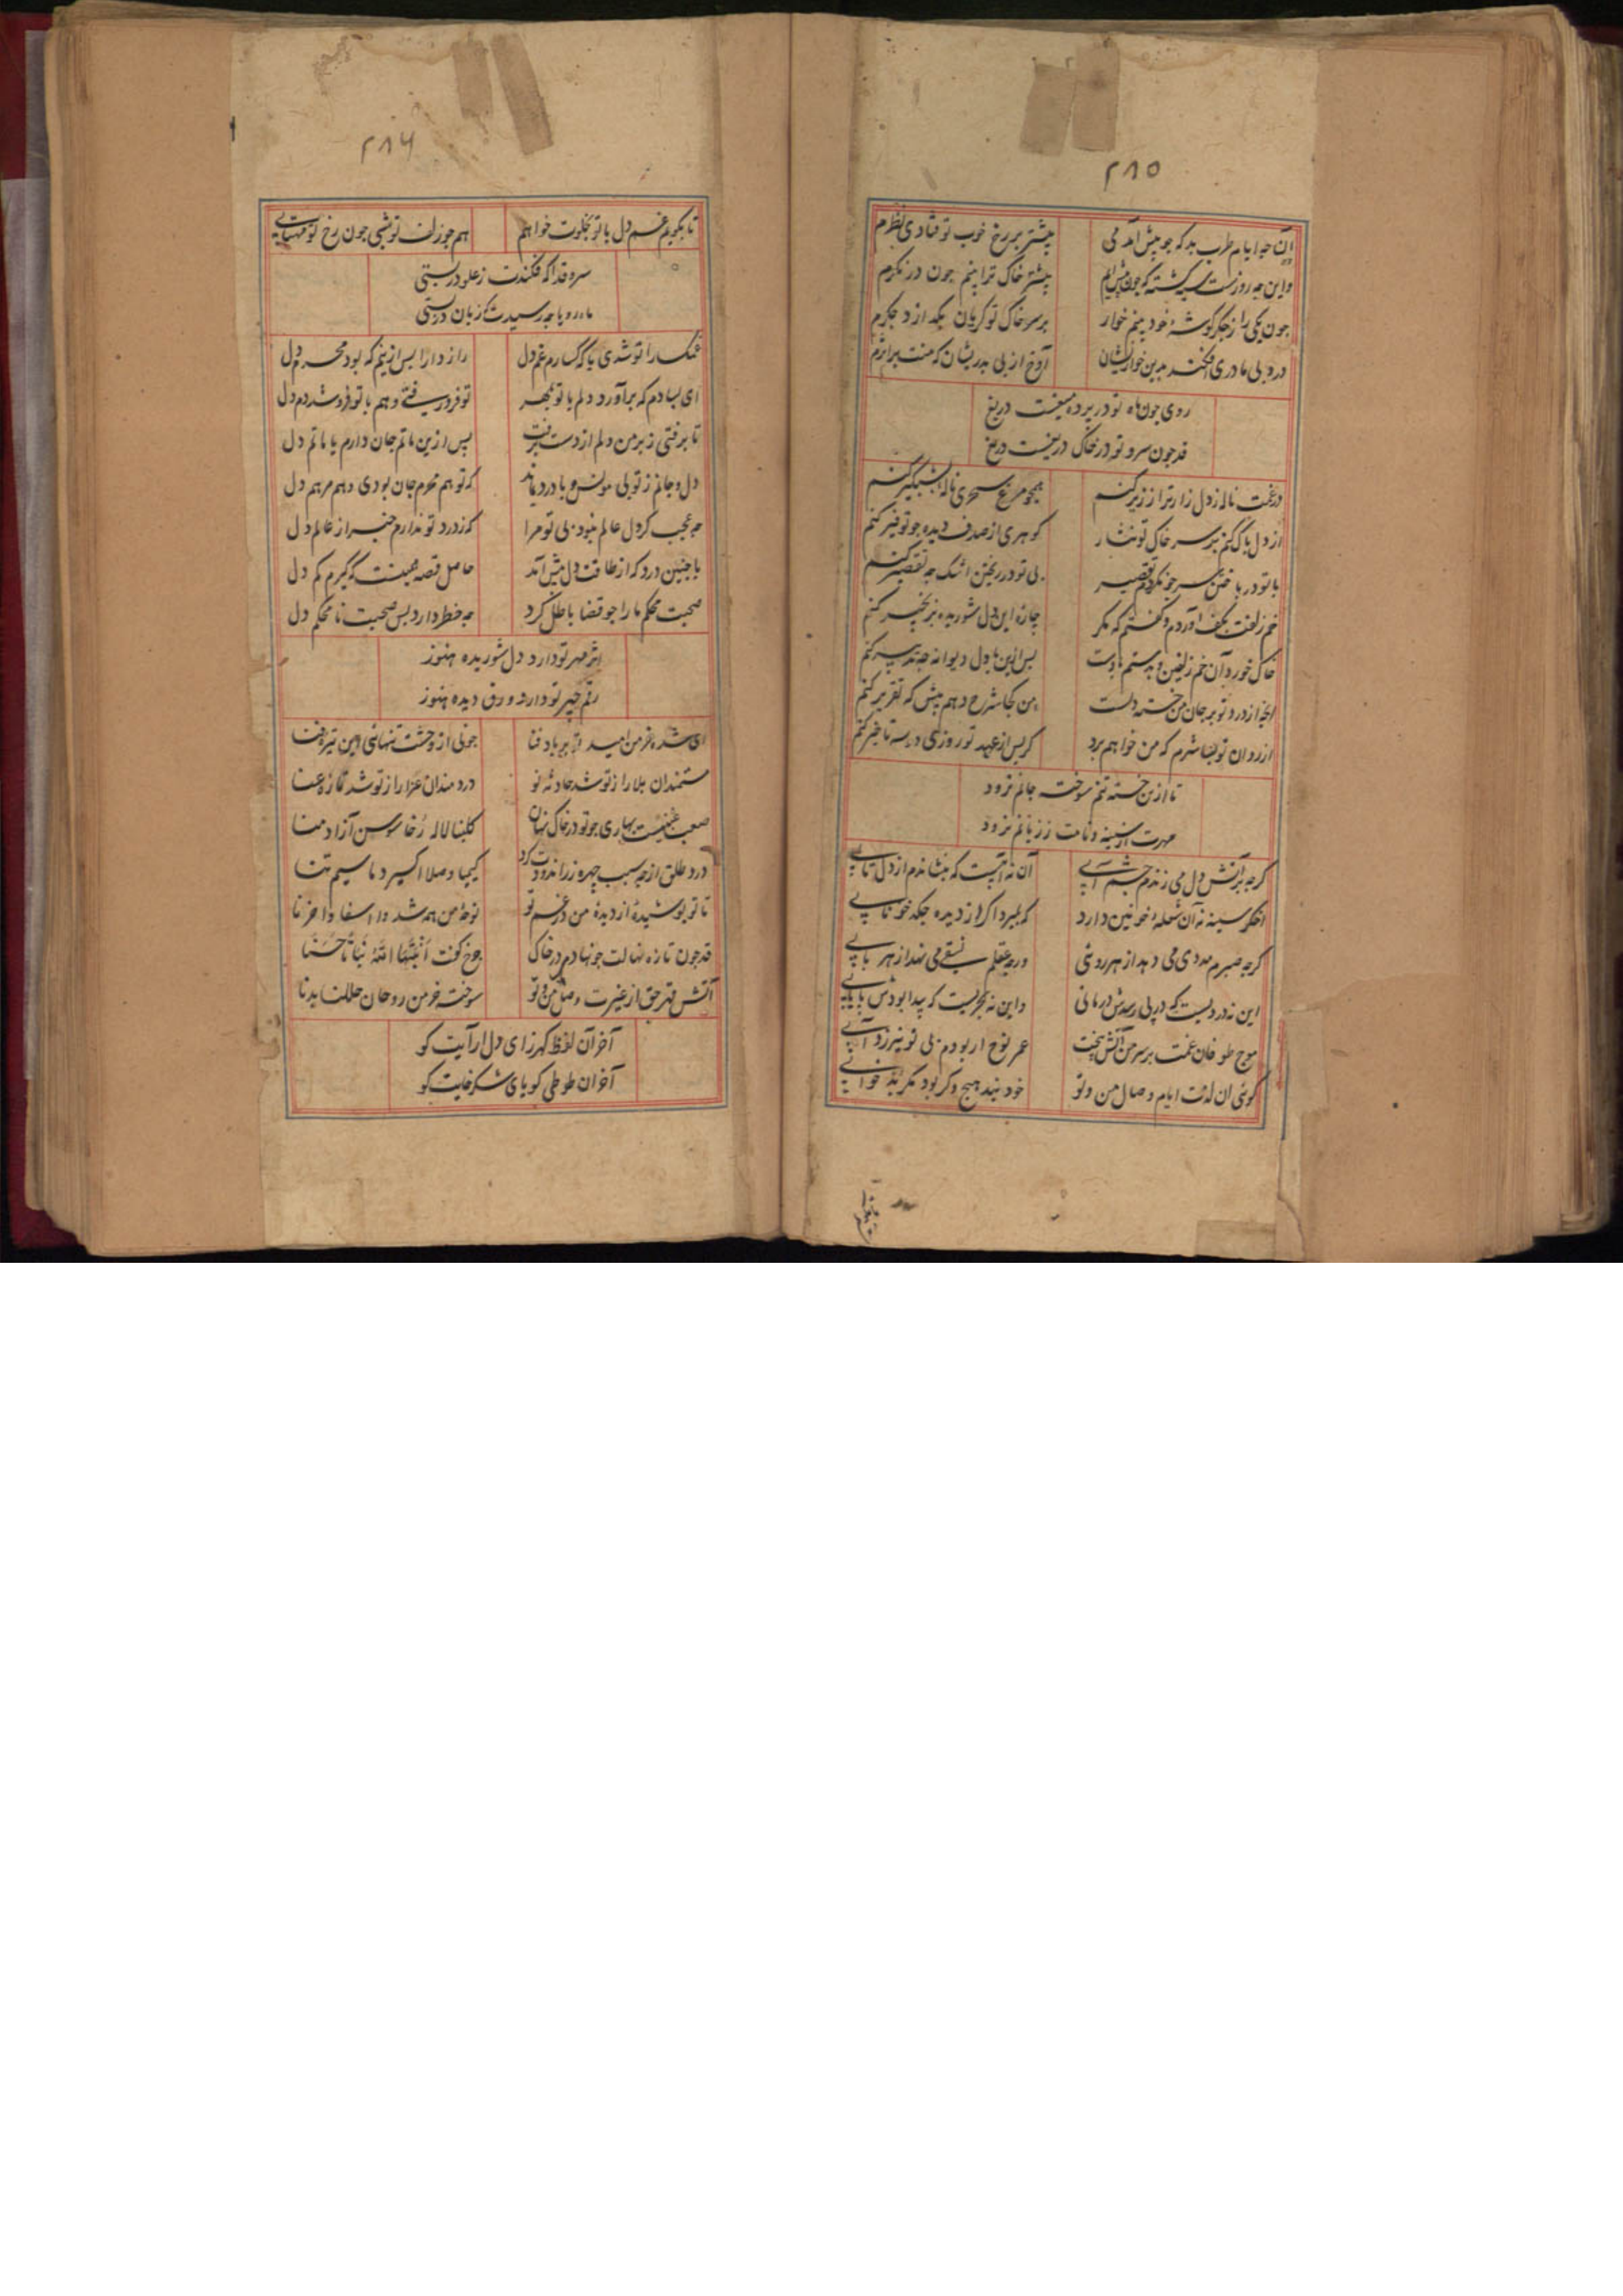 ۲۸۵
آن چه ایام طرب بد که چو پیش آمد می بیشتر بر رخ خوب تو فتادی نظرم
واین چه روزست سرکشته که چون پیش ایم بیشتر خاک ترا بینم چون درنکرم
چون یکی را ز جکرکوشهٔ خود بینم خوار بر سر خاک تو کریان بکدازد جکرم
درد بی مادری افکند بدین خواریشان آوخ از بی بدریشان که منت
روی چون ماه تو در برده میغست دریغ
قد چون سرو تو در خاک دریغست دریغ
درغمت ناله زدل زارتر از زیر کنم همچو مرغ سحری ناله شبکیر کنم
از دل باک کنم بر سر خاک تو نثار کوهری از صدف دیده چو توفیر کنم
با تو در باختن سر چو نکردم تقصیر بی تو در ریختن اشک چه تقصیر کنم
خم زلفت بکف آوردم و کفتم که مکر چاره این دل شوریده بزنجیر کنم
خاک خورد آن خم زلفین و بدستم بادست بس ازین با دل دیوانه چه تدبیر کنم
انچه از درد تو بر جان من خسته دلست من کجا شرح دهم پیش که تقریر کنم
از روان تو بسا شرم که من خواهم برد کر بس از عهد تو روزی دو سه تاخیر کنم
تا ازین خسته تنم سوخته جانم نرود
مهرت از سینه و نامت ز زبانم نرود
کرچه بر آتش دل می زندم چشم آبی آن نه آبیست که بنشاندم از دل تابی
اخکر سینه نه آن شعلهٔ خونین دارد که بمیرد اکر از دیده چکد خونابی
کرچه صبرم مددی می دهد از هر روئی ورچه عقلم نسقی می نهد از هر بابی
این نه دردیست که در پی رسدش درمانی واین نه بحریست که پیدا بودش پایابی
موج طوفان غمت بر سر من آتش بیخت عمر نوح ار بودم بی تو نیرزد آبی
کوئی ان لذت ایام وصال من و تو خود نبد هیچ وکر بود مکر بد خوابی
۲۸۶
تا بکویم غم دل با تو بخلوت خواهم هم چو زلف تو شبی چون رخ تو مهتابی
سرو قدا که فکندت ز علو در پستی
ماه رویا چه رسیدت کز زبان دربستی
غمکسارا تو شدی با که کسارم غم دل رازدارا بس ازینم که بود محرم دل
ای بسا دم که برآورد دلم با تو بمهر تو فرو رفتی و هم با تو فرو شد دم دل
تا برفتی ز بر من دلم از دست برفت بس ازین ماتم جان دارم یا ماتم دل
دل و جانم ز تو بی مونس و با درد بماند که تو هم محرم جان بودی و هم مرهم دل
چه عجب کر دل عالم نبود بی تو مرا که ز درد تو ندارم خبر از عالم دل
با چنین درد که از طاقت دل پیش آمد حاصل قصه همینست که کیرم کم دل
صحبت محکم ما را چو قضا باطل کرد چه خطر دارد بس صحبت نامحکم دل
اثر مهر تو دارد دل شوریده هنوز
رقم چهر تو دارد ورق دیده هنوز
ای شده خرمن امید تو بر باد فنا چونی از وحشت تنهائی این تیره
مستمندان بلا را ز تو شد حادثه نو دردمندان عزا را ز تو شد تازه عنا
صعب غبنیست بهاری چو تو در خاک نهان کلبنا لاله رخا سوسن آزاد منا
درد طلق از چه سبب چهره زراندودت کرد کیمیا وصلا اکسیر دما سیم تنا
تا تو بوشیدهٔ از دیدهٔ من در غم تو نوحهٔ من همه شد وا اسفا وا حزنا
قد چون تازه نهالت چو نهادم در خاک چرخ کفت اَنبَتَهَا اللّهُ نَبَاتاً حَسَنَا
آتش قهر حق از غیرت وصل من و تو سوخت خرمن روحان
آخر آن لفظ کهرزای دل آرایت کو
آخر آن طوطی کویای شکرخایت کو